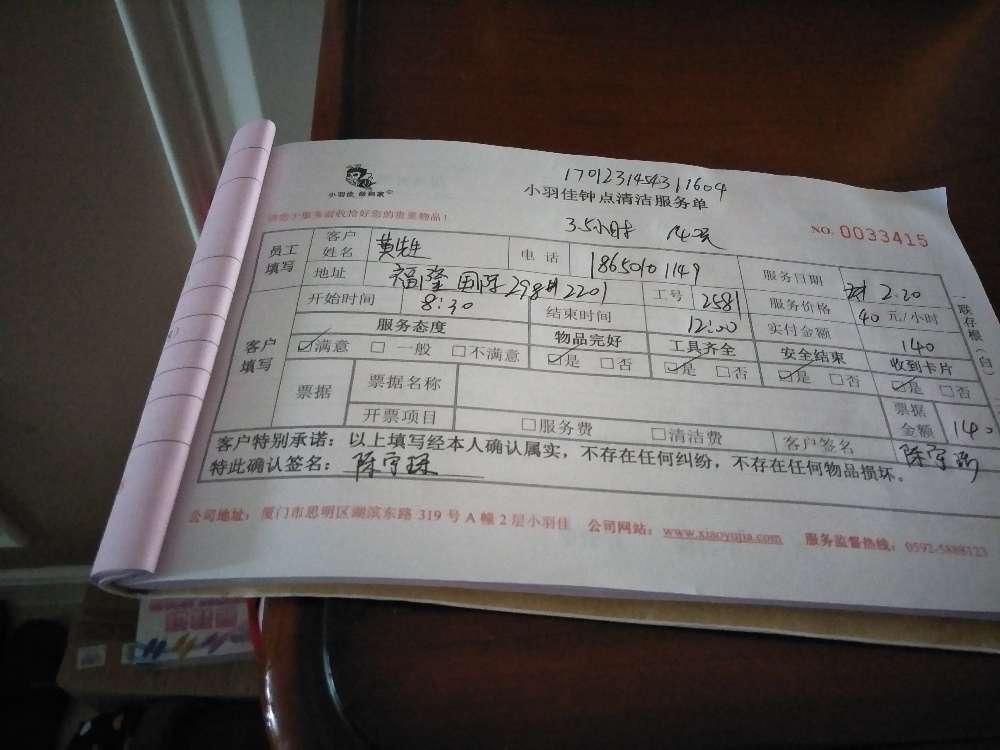 1701231454311604
小羽佳 做到家
小羽佳钟点清洁服务单
请您于服务前收拾好您的贵重物品!
3.5小时 140元
NO. 0033415
员工填写 客户姓名 黄先生 电话 18650101149 服务日期 2.20
地址 福隆国际298# 2201 工号 2581 服务价格 40元/小时
开始时间 8:30 结束时间 12:00 实付金额 140
客户填写 服务态度 物品完好 工具齐全 安全结束 收到卡片
☑满意 □一般 □不满意 ☑是 □否 ☑是 □否 ☑是 □否 ☑是 □否
票据 票据名称 票据金额 140
开票项目 □服务费 □清洁费 客户签名
客户特别承诺:以上填写经本人确认属实,不存在任何纠纷,不存在任何物品损坏。
特此确认签名:
公司地址:厦门市思明区湖滨东路 319 号 A 幢 2 层小羽佳 公司网站:www.xiaoyujia.com 服务监督热线:0592-5888123
一联存根(白)